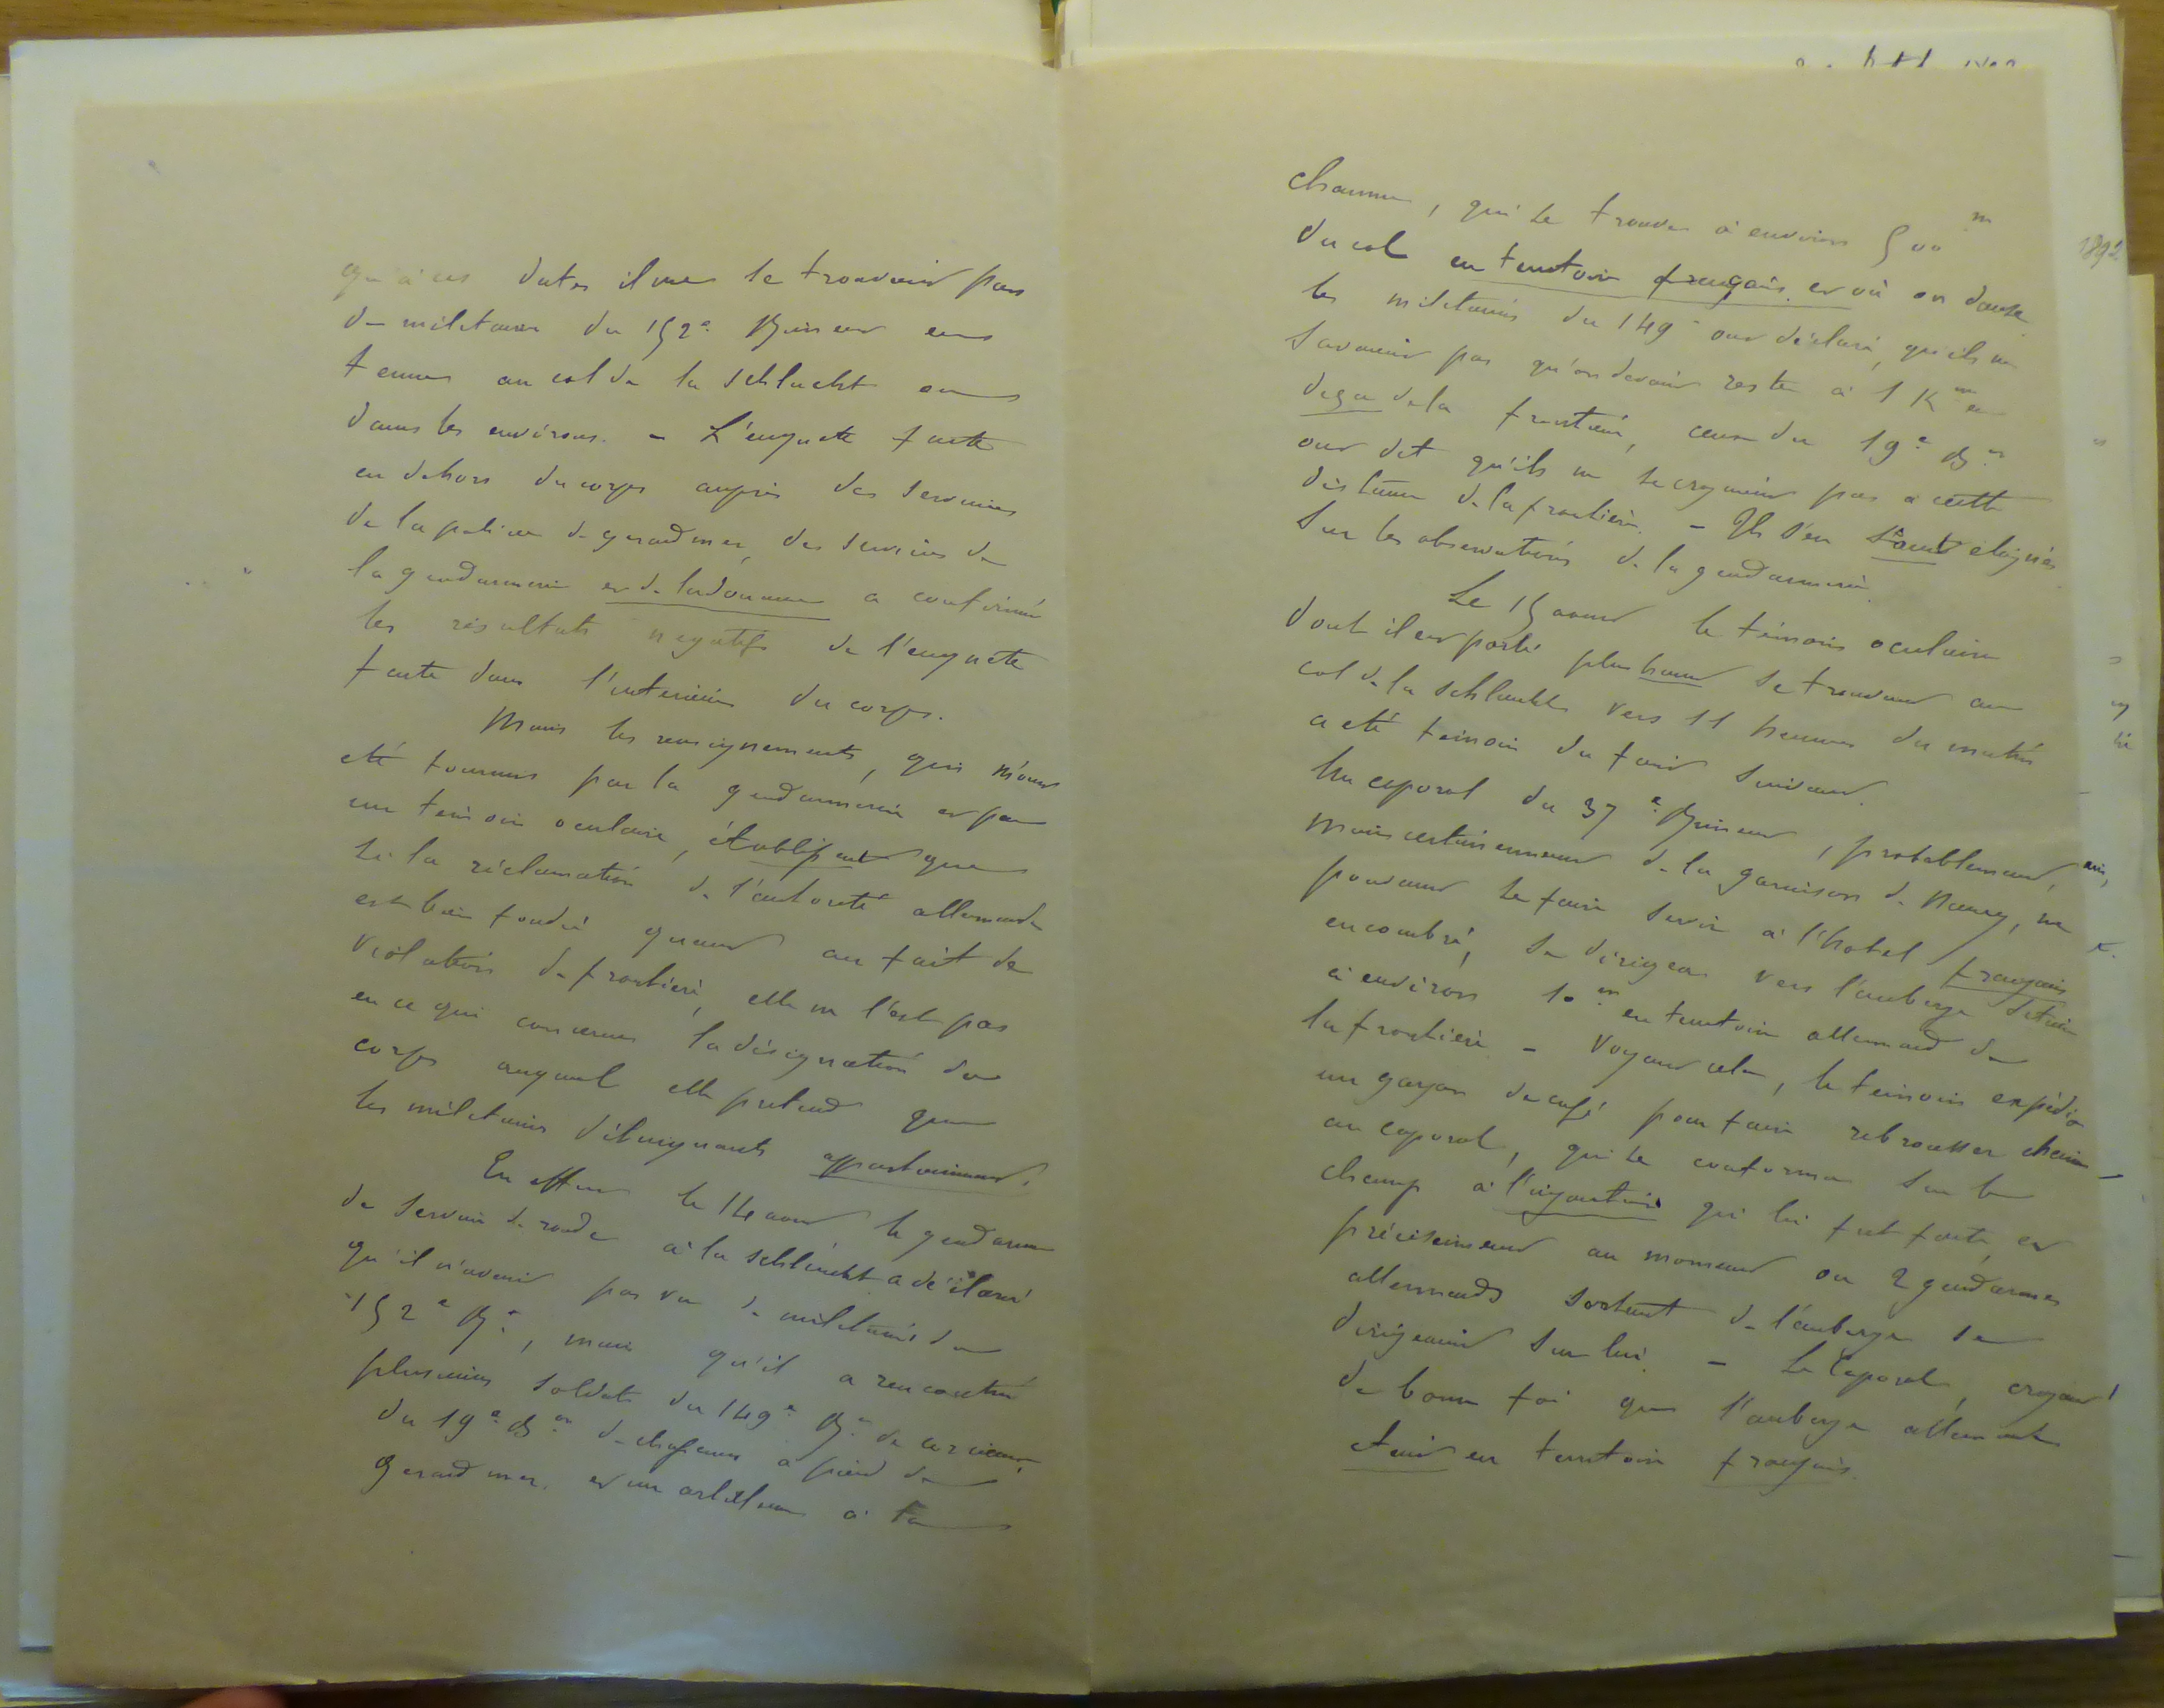 qu'à ces dates il ne se trouvait pas
de militaires du 152e Régiment en
tenue au col de la Schlucht ou
dans les environs. – L'enquête faite
en dehors du corps auprès des services
de la police de gerardmer, des services de
la gendarmerie et de la douane a confirmé
les résultats négatifs de l'enquête
faite dans l'intérieur du corps.
Mais les renseignements, qui m'ont
été fournis par la gendarmerie et par
un témoin oculaire, établissent que
si la réclamation de l'autorité allemande
est bien fondée quant au fait de
violation de frontière, elle ne l'est pas
en ce qui concerne la désignation du
corps auquel elle prétend que
les militaires délinquants appartiennent.
En effet le 14 aout le gendarme
de service de ronde à la schlucht a déclaré
qu'il n'avait pas vu de militaires du
152e Rt, mais qu'il a rencontré
plusieurs soldats du 149e Rt de
du 19e Bon de chasseurs à pied de
Gerardmer, et un artilleur à la
chaume, qui se trouve à environ 500 m
du col en territoire français et où on danse
les militaires du 149e ont déclaré, qu'ils ne
savaient pas qu'on devait rester à 1 Km en
deça de la frontière, ceux du 19e Bon
ont dit qu'ils ne se croyaient pas à cette
distance de la frontière. – Ils s'en sont éloignés
sur les observations de la gendarmerie.
Le 15 aout le témoin oculaire
dont il est parlé plus haut se trouvant au
col de la schlucht vers 11 heures du matin
a été témoin du fait suivant.
Un caporal du 37e Régiment, probablement,
mais certainement de la garnison de Nancy, ne
pouvant se faire servir à l'hotel français
encombré, se dirigea vers l'auberge située
à environ 10 m en territoire allemand de
la frontière – Voyant cela, le témoin expédia
un garçon de café pour faire rebrousser chemin
au caporal, qui se conforma sur le
champ à l'injonction qui lui fut faite, et
précisément au moment où 2 gendarmes
allemands sortant de l'auberge se
dirigeaient sur lui. – Le Caporal, croyant
de bonne foi que l'auberge allemande
était en territoire français.
1892